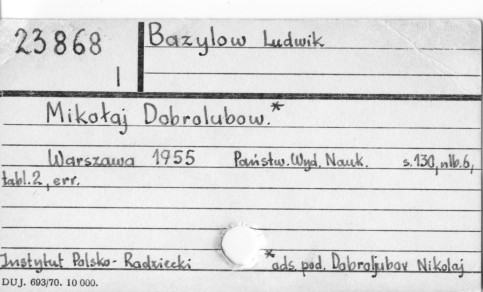 23868 Bazylow Ludwik
I
Mikołaj Dobrolubow.*
Warszawa 1955 Państw. Wyd. Nauk. s.130, nlb.6,
tabl.2, err.
Instytut Polsko-Radziecki *ods. pod. Dobroljubov Nikolaj
DUJ. 693/70. 10 000.